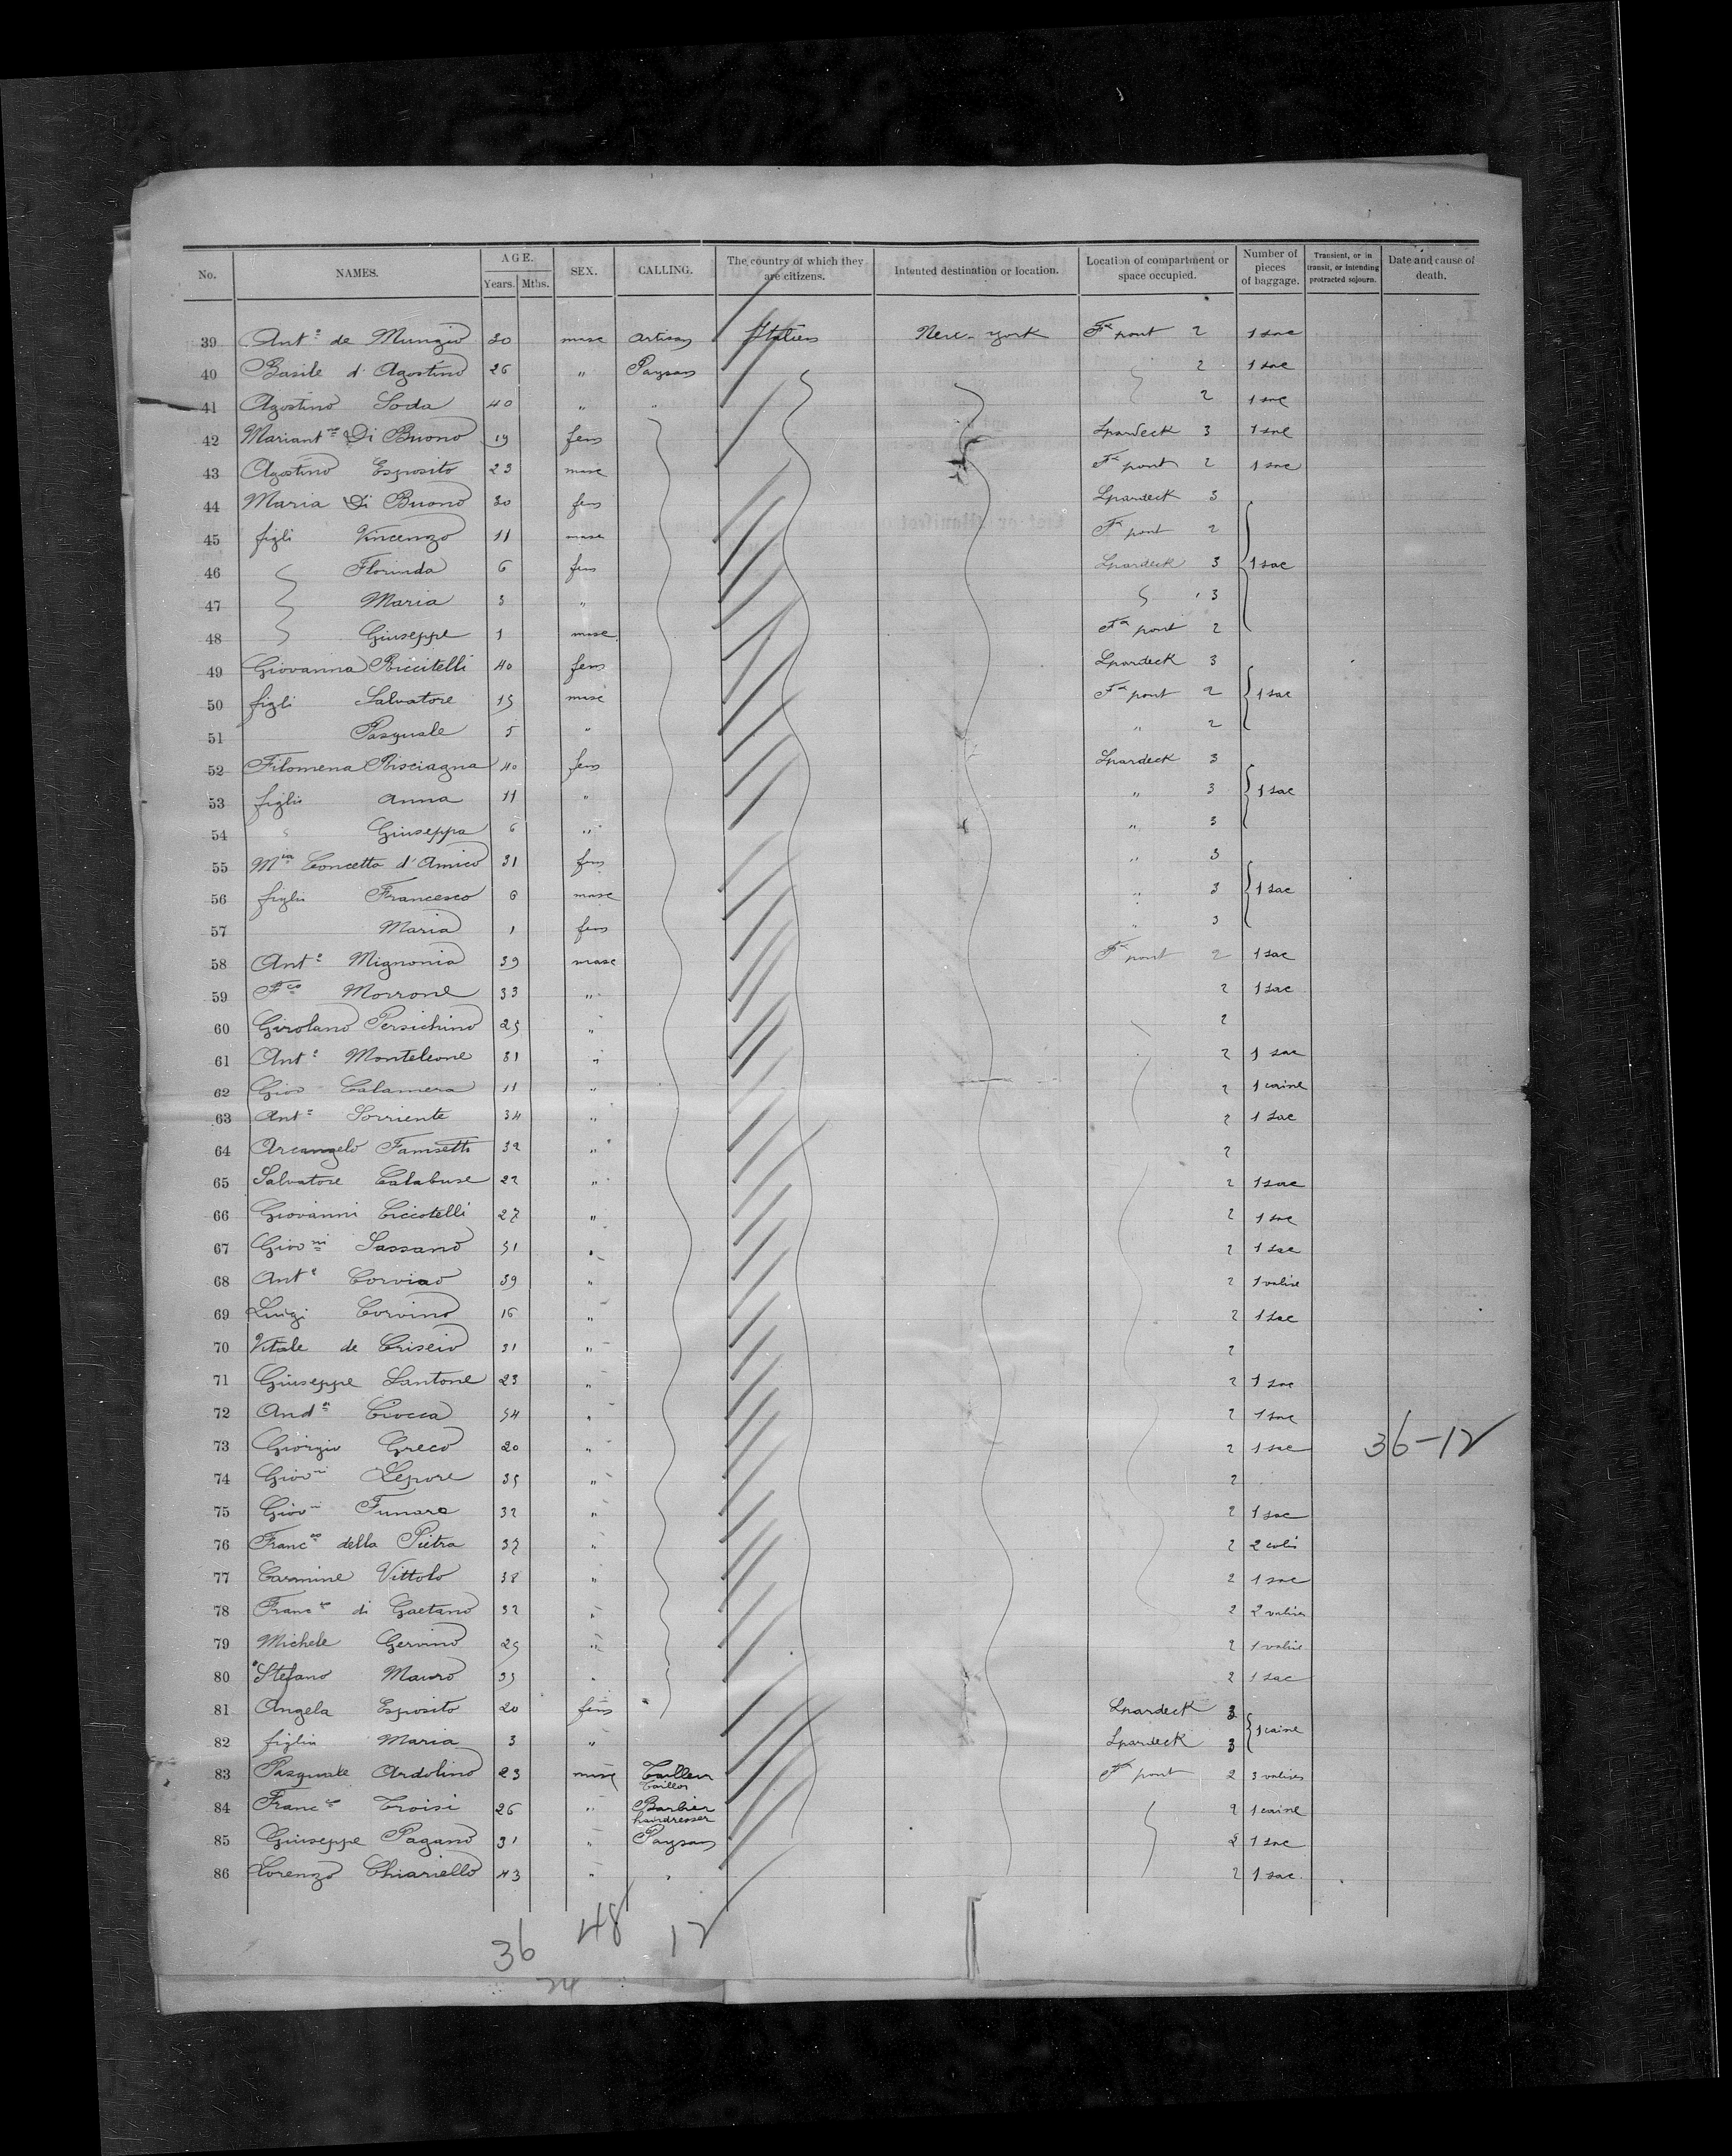 No. NAMES. AGE. Years. Mths. SEX. CALLING. The country of which they are citizens. Intented destination or location. Location of compartment or space occupied. Number of pieces of baggage. Transient, or in transit, or intending protracted sejourn. Date and cause of death.
39 Antº de Munzio 30 masc artisan Italien New-york Fx pont 2 1 sac
40 Basile d'Agostino 26 " Paysan 2 1 sac
41 Agostino Soda 40 " " 2 1 sac
42 Mariantª Di Buono 19 fem Spardeck 3 1 sac
43 Agostino Esposito 23 masc Fx pont 2 1 sac
44 Maria Di Buono 30 fem Spardeck 3
45 figli Vincenzo 11 masc Fx pont 2
46 Florinda 6 fem Spardeck 3 1 sac
47 Maria 3 " 3
48 Giuseppe 1 masc Fx pont 2
49 Giovanna Riccitelli 40 fem Spardeck 3
50 figli Salvatore 15 masc Fx pont 2 1 sac
51 Pasquale 5 " " 2
52 Filomena Risciagna 40 fem Spardeck 3
53 figlie Anna 11 " " 3 1 sac
54 Giuseppa 6 " " 3
55 Mia Concetta d'Amico 31 fem " 3
56 figli Francesco 6 masc " 3 1 sac
57 Maria 1 fem " 3
58 Antº Mignonia 39 masc Fx pont 2 1 sac
59 Fco Morrone 33 " 2 1 sac
60 Girolano Persichino 25 " 2
61 Antº Monteleone 31 " 2 1 sac
62 Giov Calamera 11 " 2 1 caisse
63 Antº Sorriente 34 " 2 1 sac
64 Arcangelo Famsetti 32 " 2
65 Salvatore Calabuse 22 " 2 1 sac
66 Giovanni Ciccotelli 27 " 2 1 sac
67 Giovni Sassano 51 " 2 1 sac
68 Antº Corvino 39 " 2 1 valise
69 Luigi Corvino 16 " 2 1 sac
70 Vitale de Criscio 31 " 2
71 Giuseppe Santone 23 " 2 1 sac
72 Andª Ciocca 54 " 2 1 sac
73 Giorgio Greco 20 " 2 1 sac 36-12
74 Giovni Lepore 35 " 2
75 Giovni Funare 32 " 2 1 sac
76 Francco della Pietra 37 " 2 2 colis
77 Carmine Vittolo 38 " 2 1 sac
78 Francco di Gaetano 32 " 2 2 valises
79 Michele Gervino 25 " 2 1 valise
80 Stefano Mauro 35 " 2 1 sac
81 Angela Esposito 20 fem Spardeck 3
82 figlia Maria 3 " Spardeck 3 1 caisse
83 Pasquale Ardolino 23 masc Tailleur Fx pont 2 3 valises
taillor
84 Francco Troisi 26 " Barbier 2 1 caisse
hairdresser
85 Giuseppe Pagano 31 " Paysan 2 1 sac
86 Lorenzo Chiariello 43 " " 2 1 sac
36 48 12
24